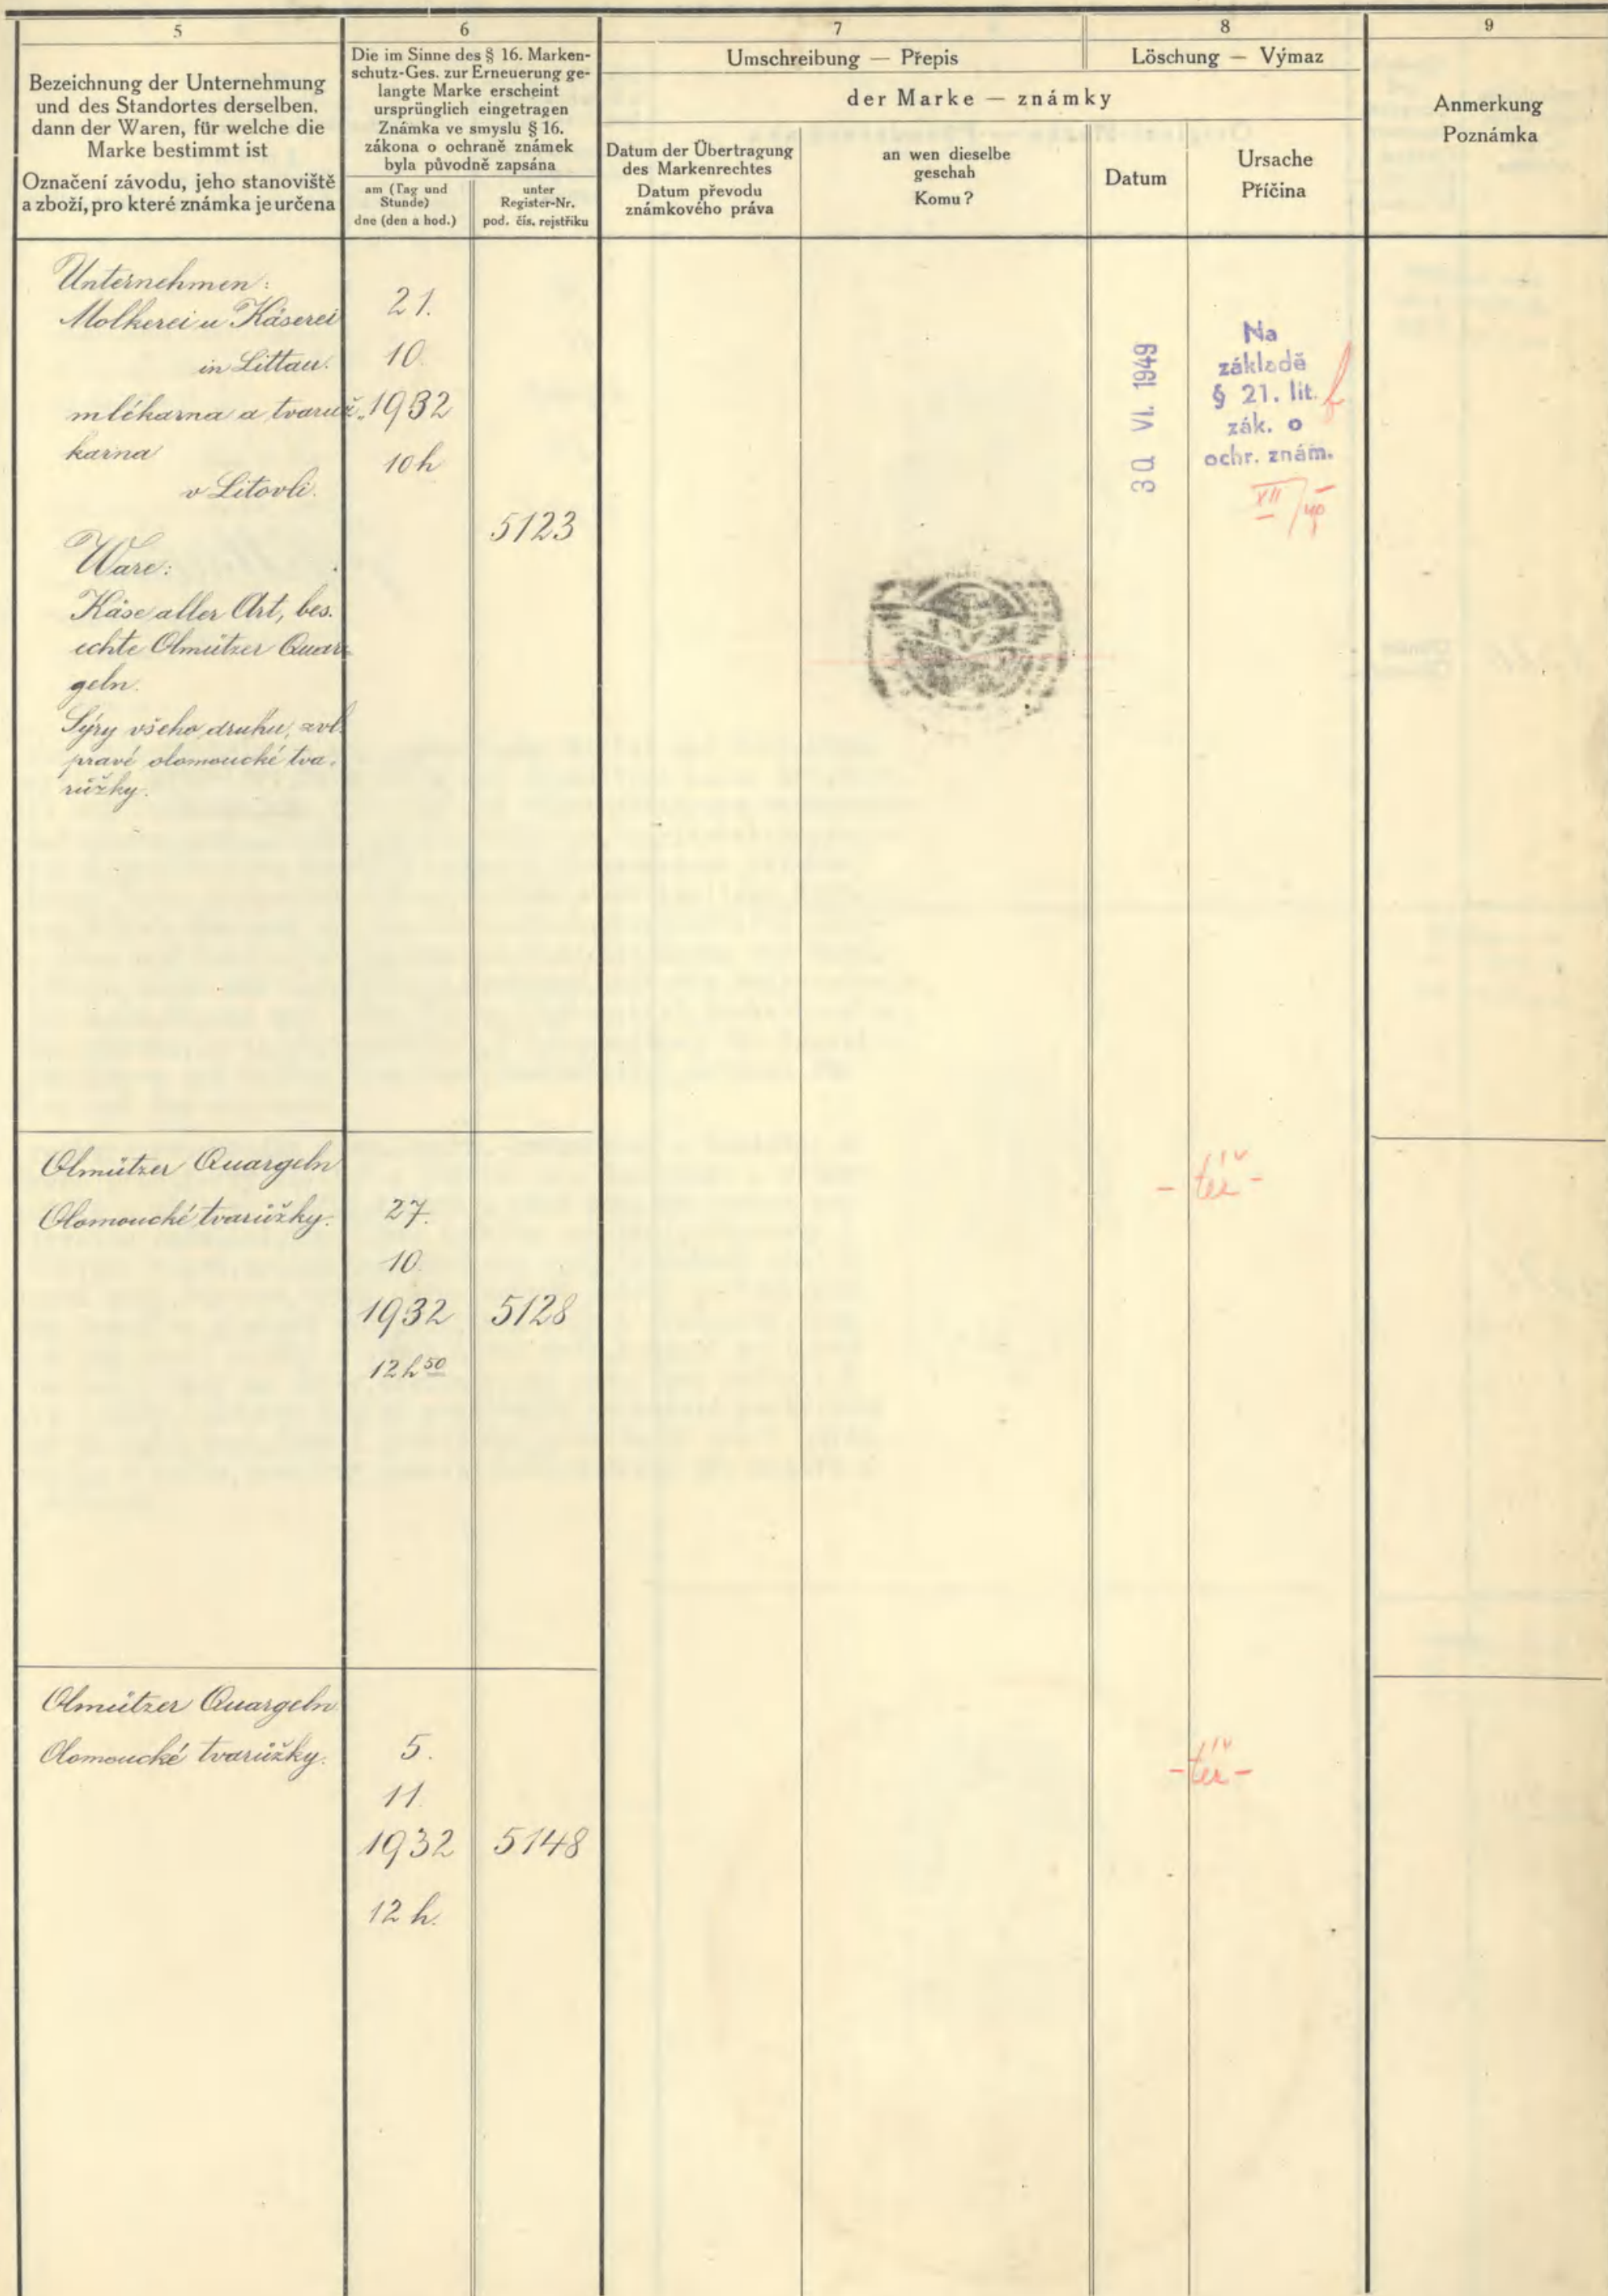 5
Bezeichnung der Unternehmung
und des Standortes derselben,
dann der Waren, für welche die
Marke bestimmt ist
Označení závodu, jeho stanoviště
a zboží, pro které známka je určena
6
Die im Sinne des § 16. Marken-
schutz-Ges. zur Erneuerung ge-
langte Marke erscheint
ursprünglich eingetragen
Známka ve smyslu § 16.
zákona o ochraně známek
byla původně zapsána
am (Tag und
Stunde)
dne (den a hod.)
unter
Register-Nr.
pod. čís. rejstříku
7
Umschreibung — Přepis
8
Löschung — Výmaz
der Marke — známky
Datum der Übertragung
des Markenrechtes
Datum převodu
známkového práva
an wen dieselbe
geschah
Komu?
Datum
Ursache
Příčina
9
Anmerkung
Poznámka
Unternehmen:
Molkerei u Käserei
in Littau.
mlékarna a tvaruž-
karna
v Litovli.
Ware:
Käse aller Art, bes.
echte Olmützer Quar-
geln.
Sýry všeho druhu, zvl.
pravé olomoucké tva-
růžky.
21.
10.
1932
10h
5123
30 VI. 1949
Na
základě
§ 21. lit. f
zák. o
ochr. znám.
XII
Olmützer Quargeln
Olomoucké tvarůžky.
27.
10.
1932
12 h 50
5128
- též -
Olmützer Quargeln
Olomoucké tvarůžky.
5.
11.
1932
12 h.
5148
- též -